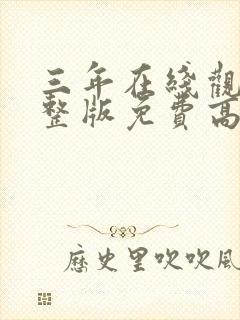 三年在綫觀
整版免費高
歷史里吹吹風